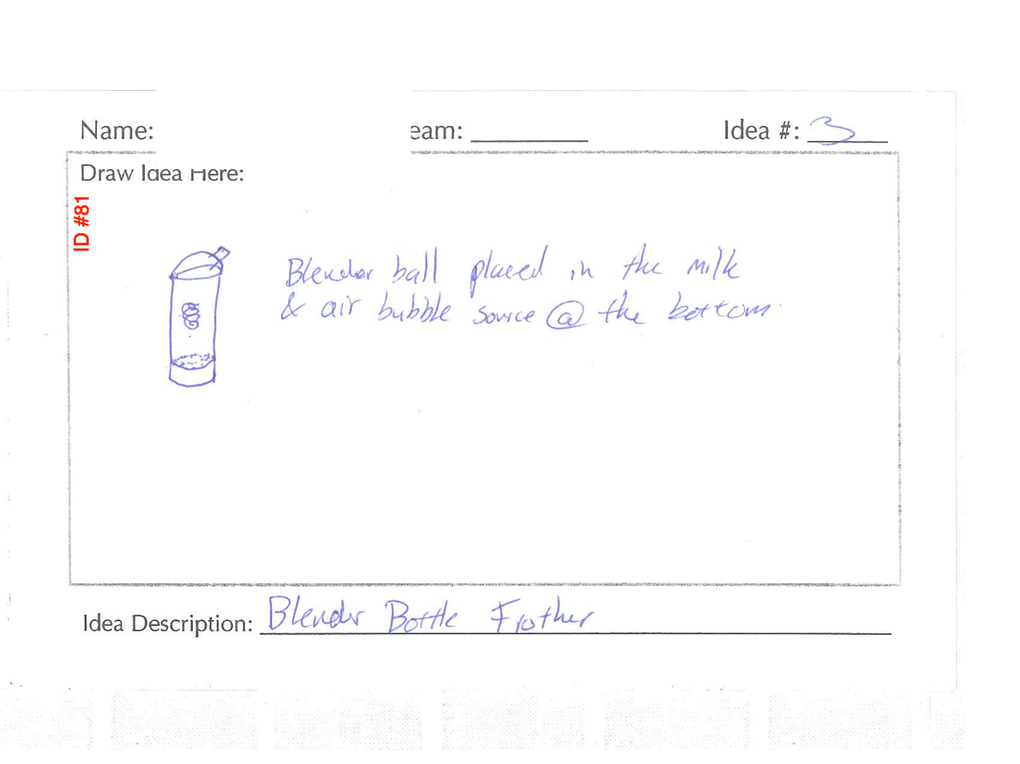 Name: eam: Idea #: 3
Draw Idea Here:
ID #81
Blender ball placed in the milk
& air bubble source @ the bottom
Idea Description: Blender Bottle Frother